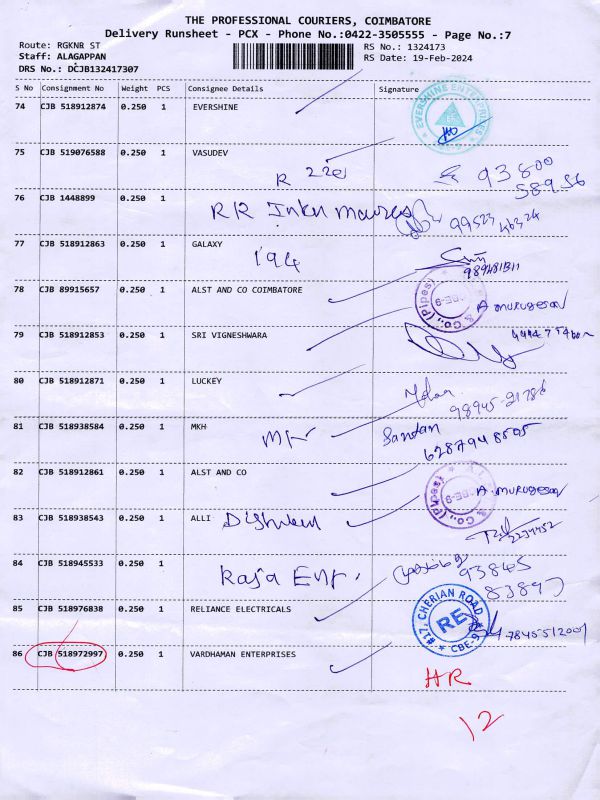 THE PROFESSIONAL COURIERS, COIMBATORE
Delivery Runsheet - PCX - Phone No.:0422-3505555 - Page No.:7
Route: RGKNR ST RS No.: 1324173
Staff: ALAGAPPAN RS Date: 19-Feb-2024
DRS No.: DCJB132417307
S No Consignment No Weight PCS Consignee Details Signature
74 CJB 518912874 0.250 1 EVERSHINE
EVERSHINE ENTERPRISES
75 CJB 519076588 0.250 1 VASUDEV
R 93800
58956
76 CJB 1448899 0.250 1
RR
77 CJB 518912863 0.250 1 GALAXY
194
78 CJB 89915657 0.250 1 ALST AND CO COIMBATORE
& Co., (Pipes) CBE-9
A. murugesan
79 CJB 518912853 0.250 1 SRI VIGNESHWARA
80 CJB 518912871 0.250 1 LUCKEY
98945-21786
81 CJB 518938584 0.250 1 MKH
Sandan
6287948505
82 CJB 518912861 0.250 1 ALST AND CO
& Co., (Pipes) CBE-9
A. murugesan
83 CJB 518938543 0.250 1 ALLI
84 CJB 518945533 0.250 1
Raja Ent.
93845
83897
85 CJB 518976838 0.250 1 RELIANCE ELECTRICALS
#17, CHERIAN ROAD RE CBE-9
7845512001
86 CJB 518972997 0.250 1 VARDHAMAN ENTERPRISES
HR
12